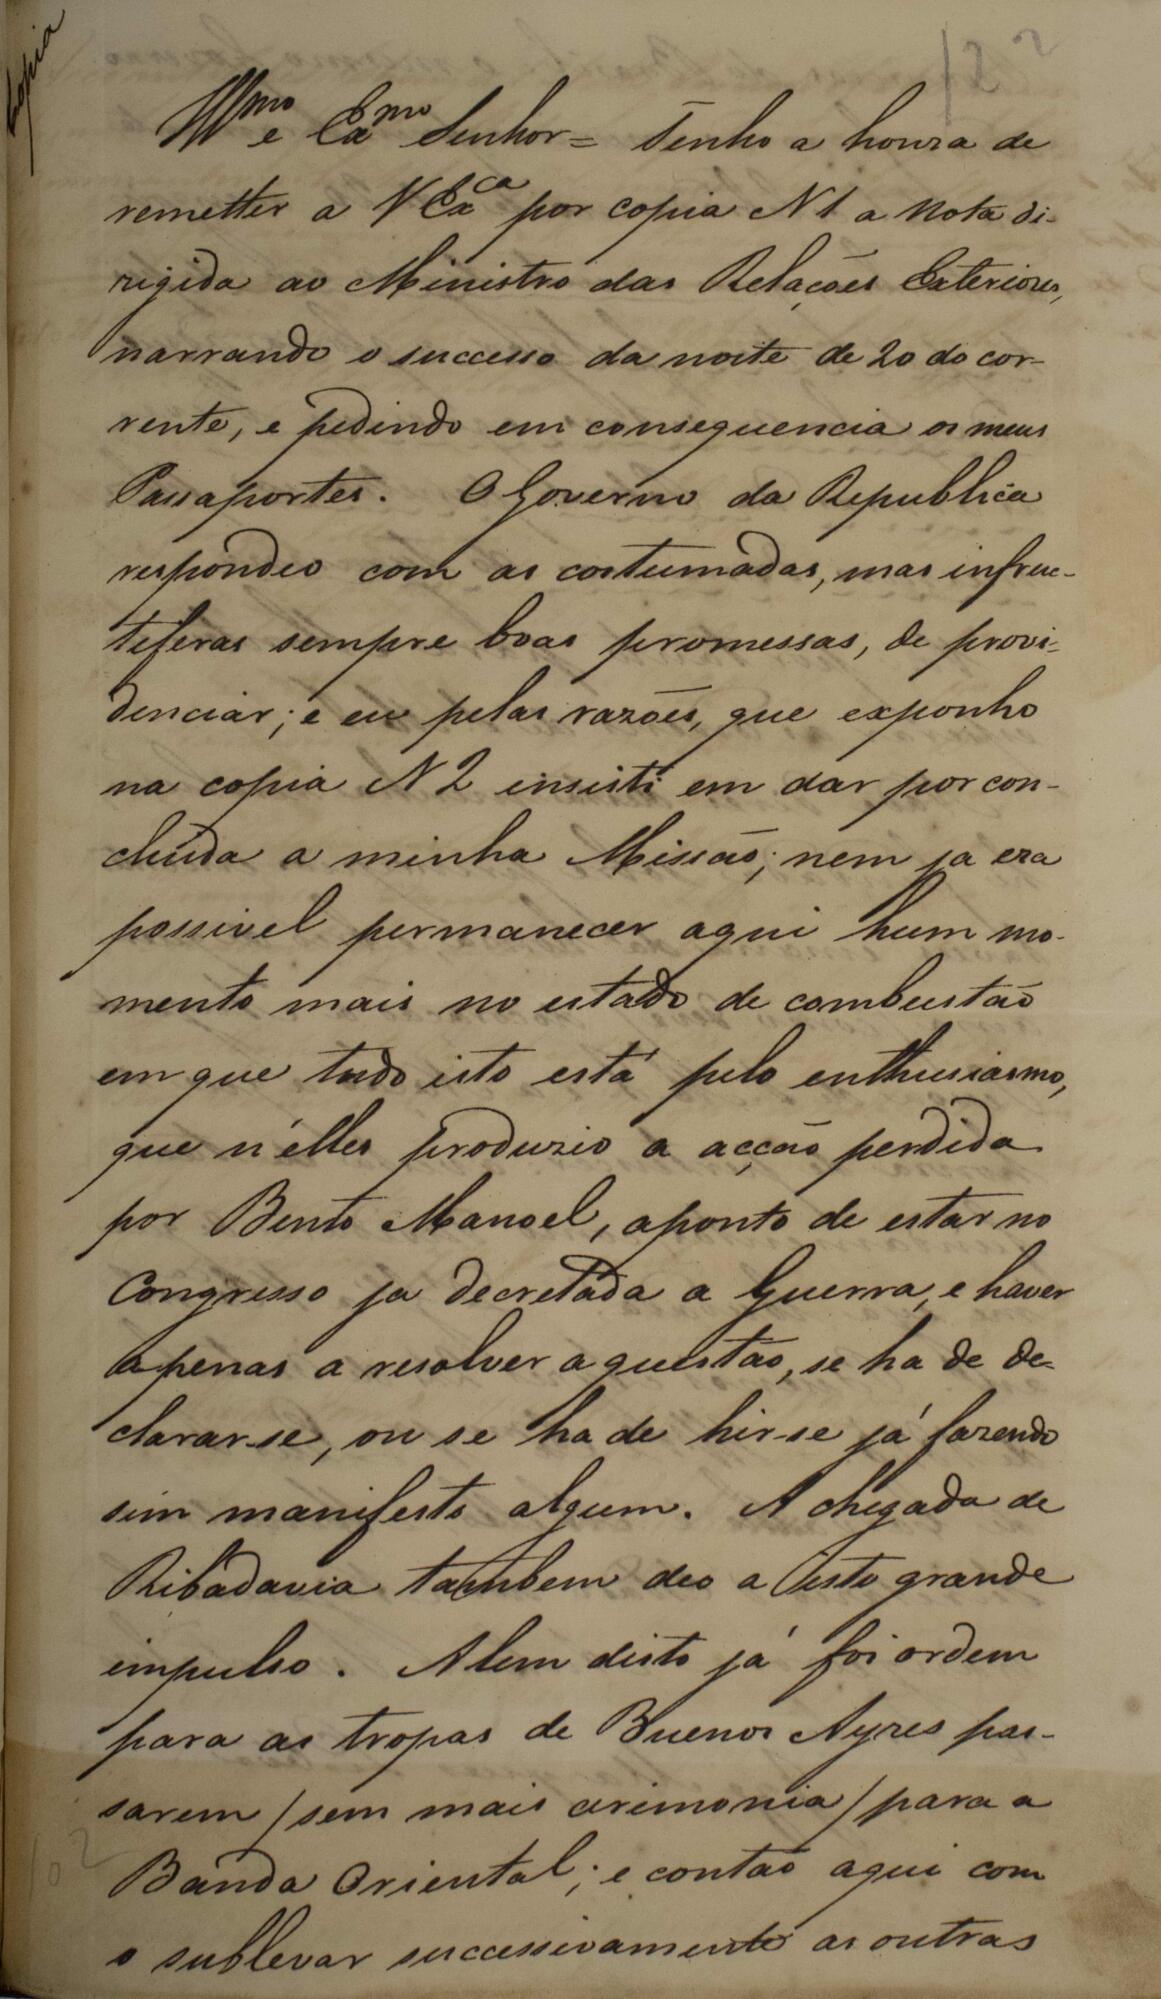 Copia
Illmo e Exmo Senhor = Tenho a honra de
remetter a V Exca por copia N 1 a Nota di-
rigida ao Ministro das Relações Exteriores,
narrando o successo da noite de 20 do cor-
rente, e pedindo em consequencia os meus
Passaportes. O Governo da Republica
respondeo com as costumadas, mas infruc-
tiferas sempre boas promessas, de provi-
denciar; e eu pelas razões, que exponho
na copia N 2 insisti em dar por con-
cluida a minha Missão; nem ja era
possivel permanecer aqui hum mo-
mento mais no estado de combustão
em que tudo isto está pelo enthusiasmo,
que n'elles produzio a acção perdida
por Bento Manoel, aponto de estar no
Congresso ja decretada a Guerra, e haver
apenas a resolver a questão, se ha de de-
clarar-se, ou se ha de hir-se já fazendo
sim manifesto algum. A chegada de
Ribadavia tambem deo a isto grande
impulso. Alem disto já foi ordem
para as tropas de Buenos Ayres pas-
sarem / sem mais cirimonia / para a
Banda Oriental; e contão aqui com
o sublevar successivamente as outras
102